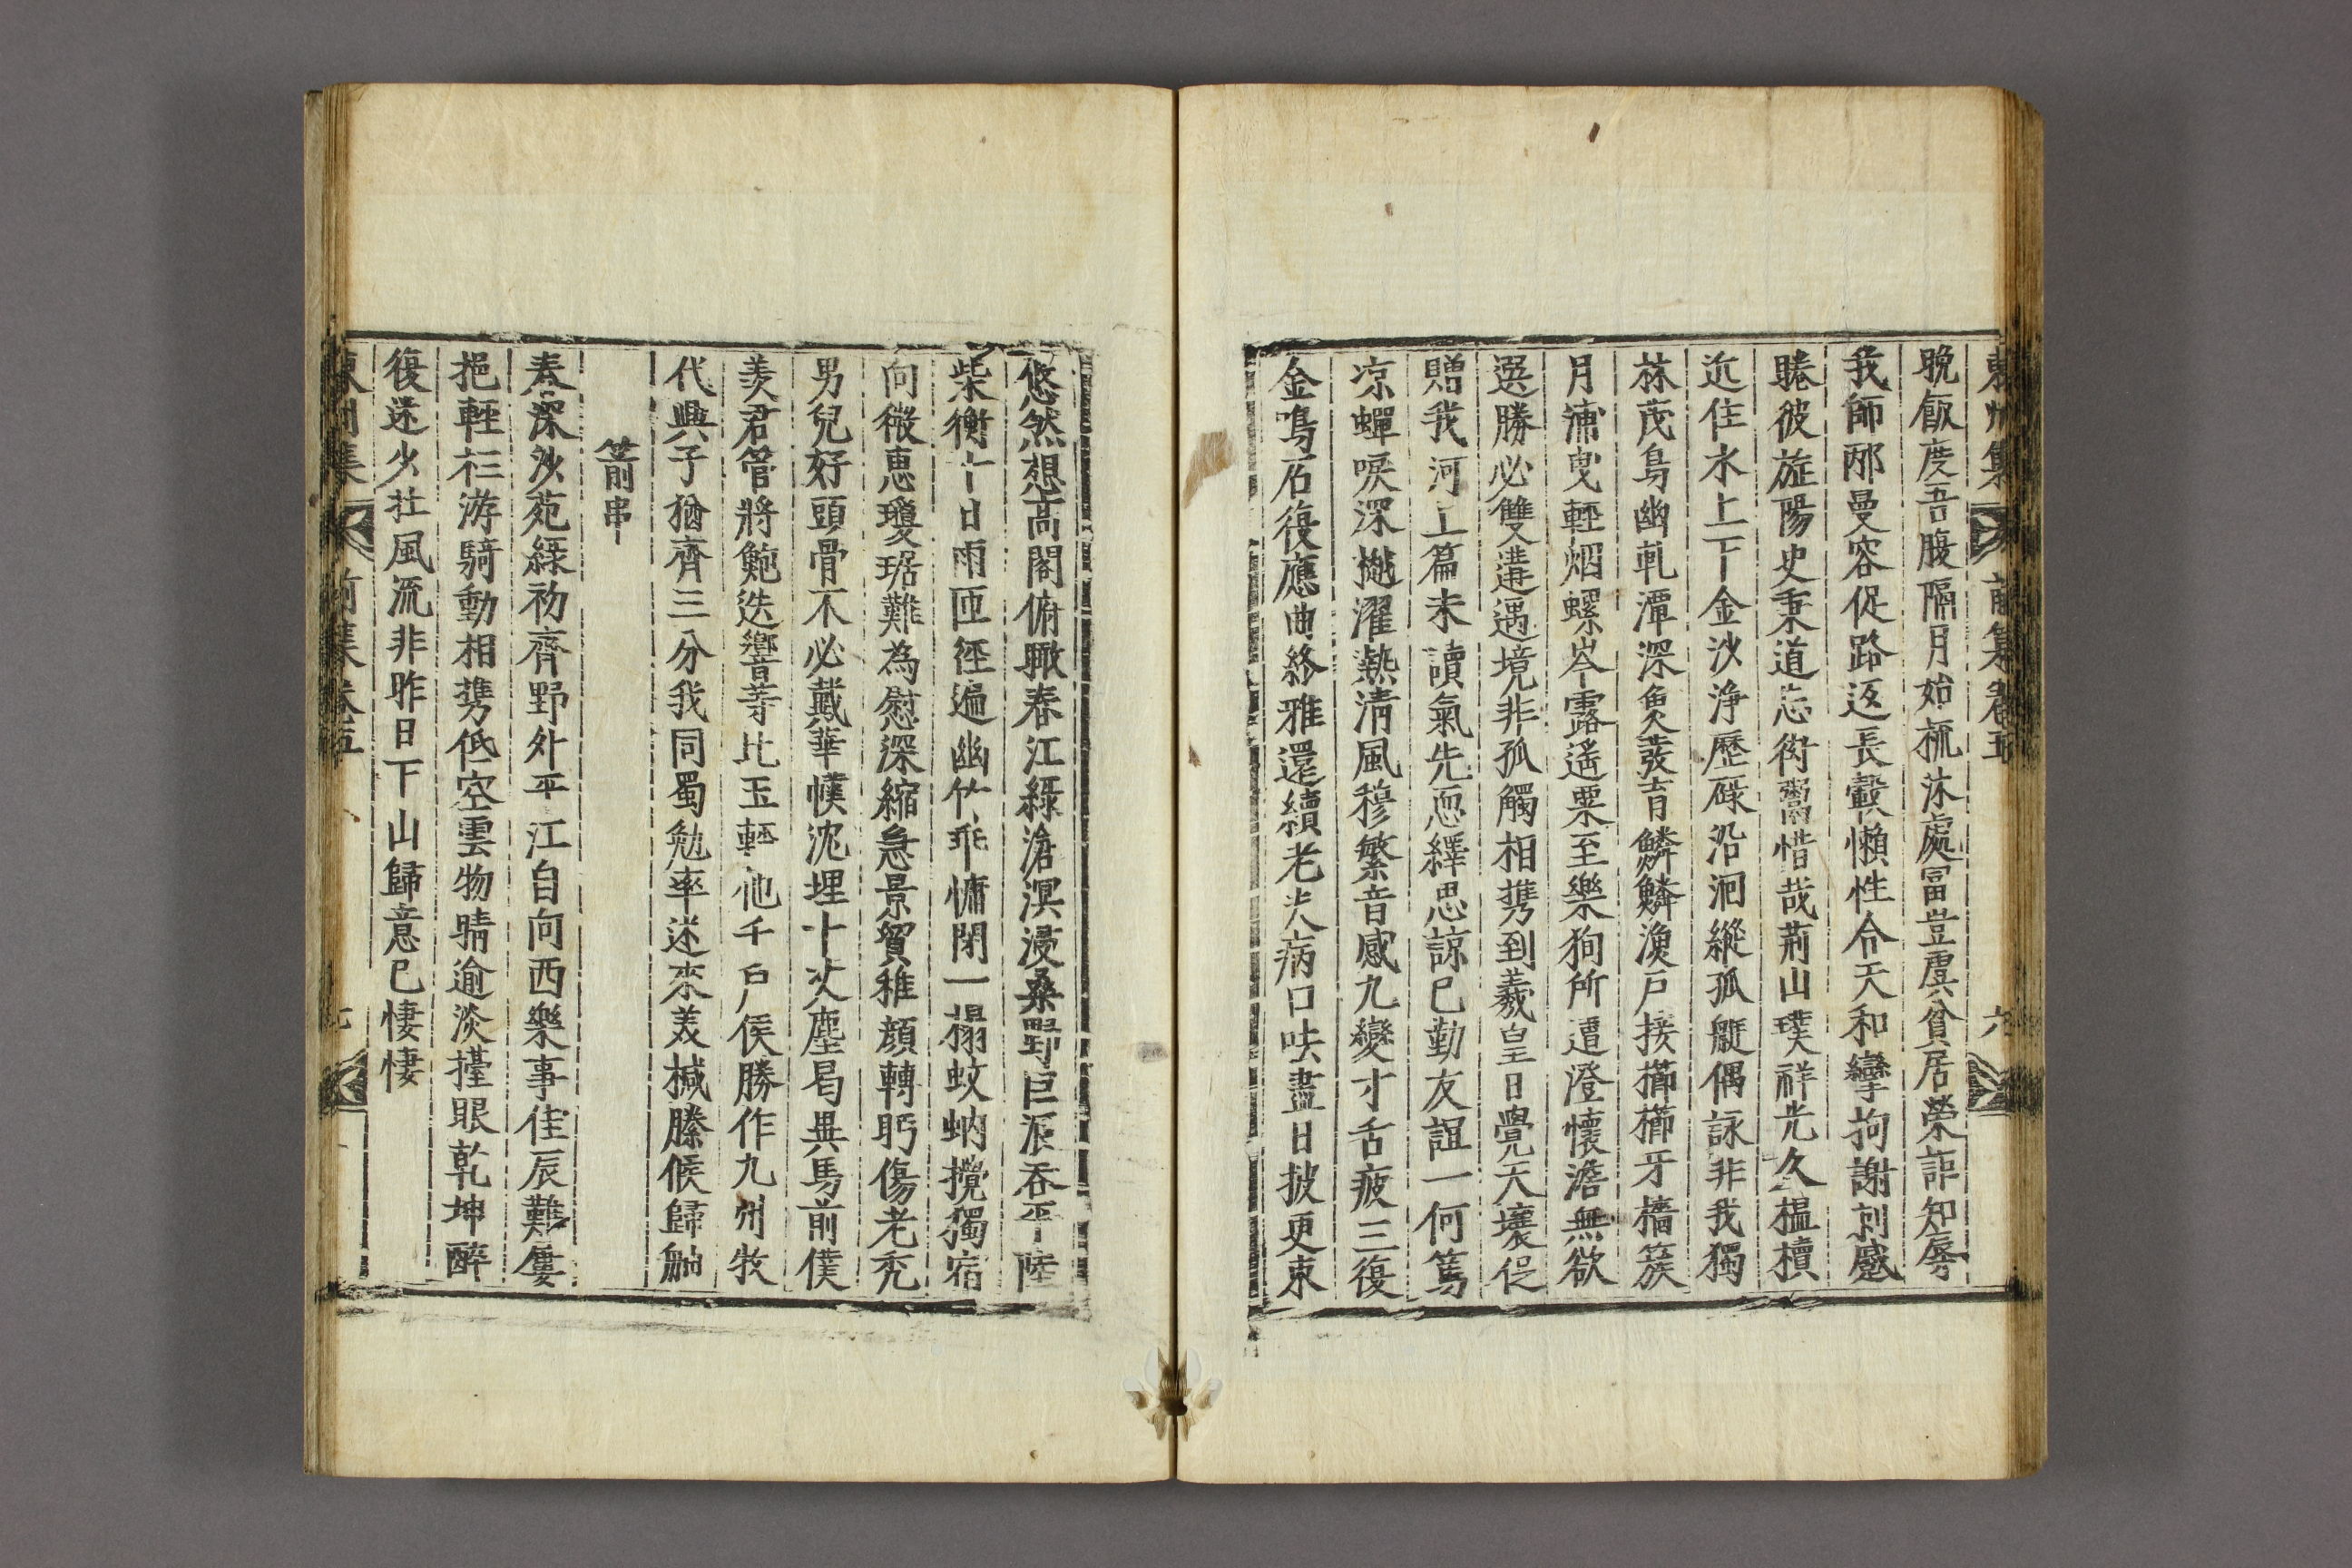 東州集 前集卷五 六
晚飯度吾腹隔月始梳沐處富豈虞貧居榮詎知辱
我師邴曼容促路返長轂懶性合天和孿拘謝剡蹙
睠彼旌陽史秉道忘衒鬻惜哉荊山璞祥光久榲櫝
近住水上下金沙淨歷碌沿洄縱孤艇偶詠非我獨
林茂鳥幽軋潭深魚蕟育鱗鱗漁戶接櫛櫛牙檣簇
月浦曳輕烟螺岑露遙粟至樂狥所遭澄懷澹無欲
選勝必雙遘遇境非孤觸相携到羲皇日覺天壤促
贈我河上篇未讀氣先恧繹思諒已勤友誼一何篤
凉蟬唳深樾濯熱清風穆繁音感九變寸舌疲三復
金鳴石復應曲終雅還續老夫病口呿盡日披更束
悠然想高閣俯瞰春江綠滄溟浸桑野巨派吞平陸
柴衡十日雨匝徑遍幽竹乖慵閉一榻蚊蚋攪獨宿
向微惠瓊琚難為慰深縮急景貿稚顏轉眄傷老禿
男兒好頭骨不必戴華幞沈埋十丈塵曷異馬前僕
羨君管將鮑迭響荨比玉輕他千戶侯勝作九州牧
代興子猶齊三分我同蜀勉率迷來美緘縢候歸舳
箭串
春深沙苑綠初齊野外平江自向西樂事佳辰難屢
挹輕衫游騎動相携低空雲物晴逾淡擡眼乾坤醉
復迷少壯風流非昨日下山歸意已悽悽
東州集 前集卷五 七